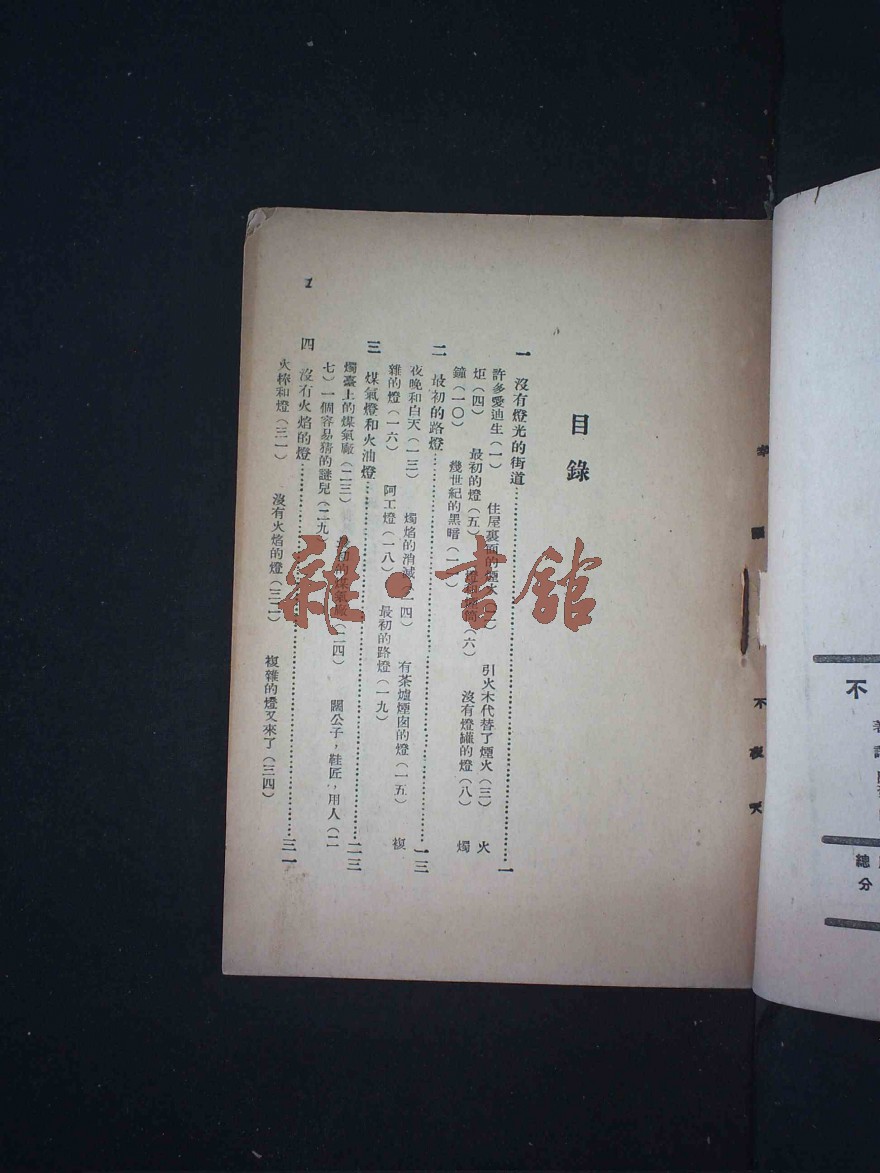 目錄
一 沒有燈光的街道……一
許多愛迪生（一） 住屋裏面的煙火 引火木代替了煙火（三） 火
炬（四） 最初的燈（五） （六） 沒有燈罐的燈（八） 燭
鐘（一〇） 幾世紀的黑暗
二 最初的路燈……一三
夜晚和白天（一三） 燭焰的消滅（一四） 有茶爐煙囪的燈（一五） 複
雜的燈（一六） 阿工燈（一八） 最初的路燈（一九）
三 煤氣燈和火油燈……二三
燭臺上的煤氣廠（二三） 最初的煤氣廠（二四） 闊公子，鞋匠，用人（二
七） 一個容易猜的謎兒（二九）
四 沒有火焰的燈……三一
火棒和燈（三一） 沒有火焰的燈（三二） 複雜的燈又來了（三四）
1
不夜天
不
總
分
雜·書館